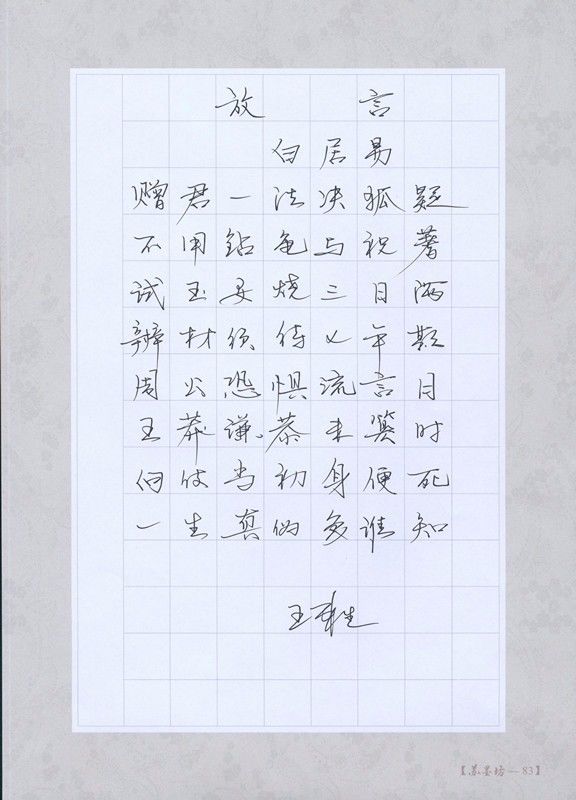 放言
白居易
赠君一法决狐疑
不用钻龟与祝蓍
试玉要烧三日满
辨材须待七年期
周公恐惧流言日
王莽谦恭未篡时
向使当初身便死
一生真伪复谁知
【苏墨坊—83】